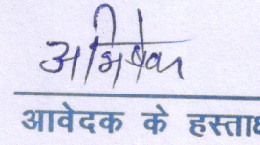 अभिषेक
आवेदक के हस्ता